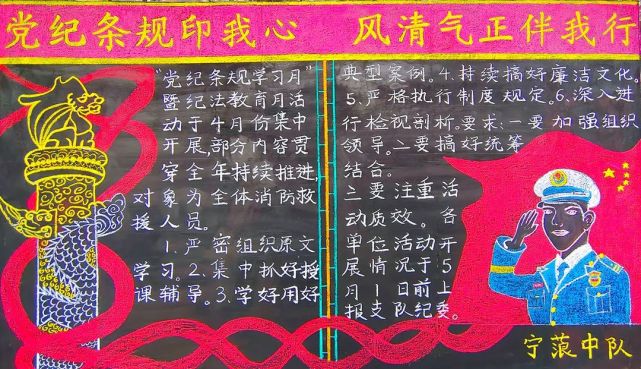 党纪条规印我心 风清气正伴我行
“党纪条规学习月”
暨纪法教育月活
动于4月份集中
开展,部分内容贯
穿全年持续推进,
对象为全体消防救
援人员。
1.严密组织原文
学习。2.集中抓好授
课辅导。3.学好用好
典型案例。4.持续搞好廉洁文化。
5.严格执行制度规定。6.深入进
行检视剖析。要求:一要加强组织
领导。二要搞好统筹
结合。
三要注重活
动质效。各
单位活动开
展情况于5
月1日前上
报支队纪委。
宁蒗中队